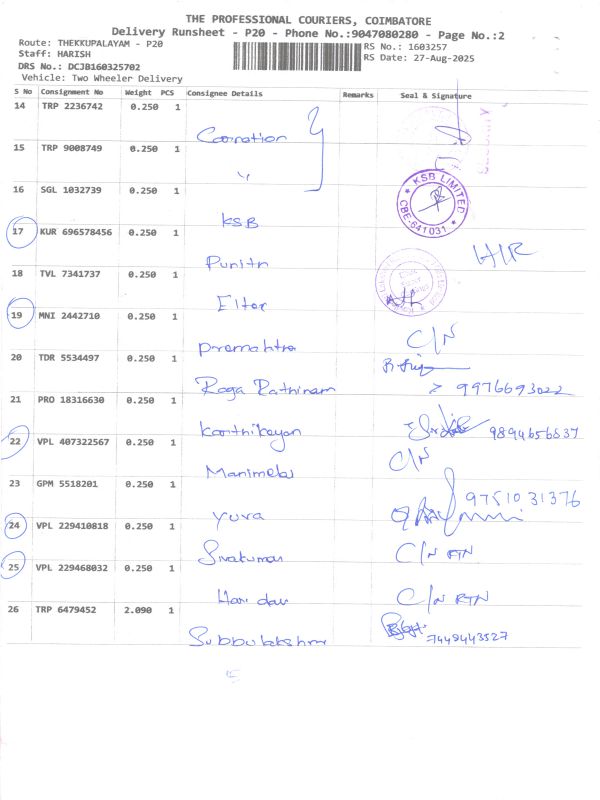 THE PROFESSIONAL COURIERS, COIMBATORE
Delivery Runsheet - P20 - Phone No.:9047080280 - Page No.:2
Route: THEKKUPALAYAM - P20
RS No.: 1603257
Staff: HARISH
RS Date: 27-Aug-2025
DRS No.: DCJB160325702
Vehicle: Two Wheeler Delivery
S No Consignment No Weight PCS Consignee Details Remarks Seal & Signature
14 TRP 2236742 0.250 1
Coronation
15 TRP 9008749 0.250 1
〃
16 SGL 1032739 0.250 1
KSB
KSB LIMITED CBE-641031
17 KUR 696578456 0.250 1
Punitn
H/R
18 TVL 7341737 0.250 1
Eltor
19 MNI 2442710 0.250 1
C/N
20 TDR 5534497 0.250 1
Raga Rathinam
9976693022
21 PRO 18316630 0.250 1
Karthikeyan
9894656837
22 VPL 407322567 0.250 1
C/N
Manimelai
23 GPM 5518201 0.250 1
9751031376
Yuva
24 VPL 229410818 0.250 1
Sivakumar C/N RTN
25 VPL 229468032 0.250 1
Hari das C/N RTN
26 TRP 6479452 2.090 1
Subbulakshmi 7449443527